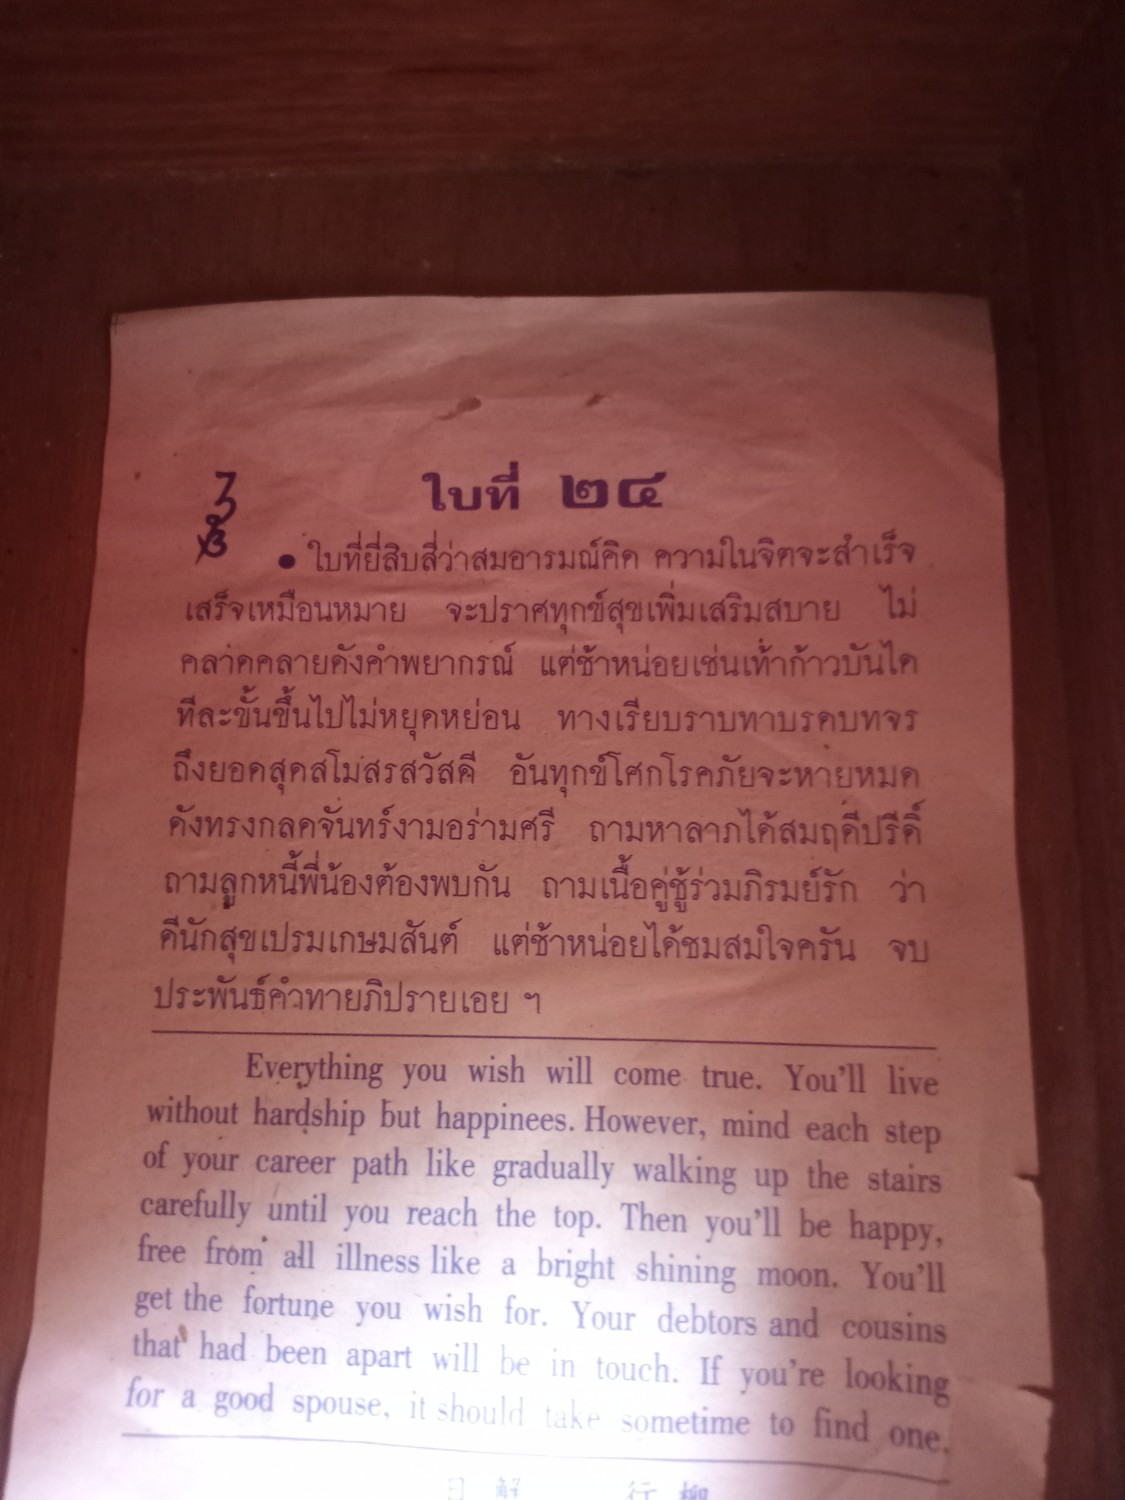 ใบที่ ๒๔
• ใบที่ยี่สิบสี่ว่าสมอารมณ์คิด ความในจิตจะสำเร็จ
เสร็จเหมือนหมาย จะปราศทุกข์สุขเพิ่มเสริมสบาย ไม่
คลาดคลายดังคำพยากรณ์ แต่ช้าหน่อยเช่นเท้าก้าวบันได
ทีละขั้นขึ้นไปไม่หยุดหย่อน ทางเรียบราบทาบรดบทจร
ถึงยอดสุดสโมสรสวัสดี อันทุกข์โศกโรคภัยจะหายหมด
ดังทรงกลดจันทร์งามอร่ามศรี ถามหาลาภได้สมฤดีปรีดิ์
ถามลูกหนี้พี่น้องต้องพบกัน ถามเนื้อคู่ชู้ร่วมภิรมย์รัก ว่า
ดีนักสุขเปรมเกษมสันต์ แต่ช้าหน่อยได้ชมสมใจครัน จบ
ประพันธ์คำทายภิปรายเอย ฯ
Everything you wish will come true. You'll live
without hardship but happinees. However, mind each step
of your career path like gradually walking up the stairs
carefully until you reach the top. Then you'll be happy,
free from all illness like a bright shining moon. You'll
get the fortune you wish for. Your debtors and cousins
that had been apart will be in touch. If you're looking
for a good spouse, it should take sometime to find one.
日 解 行